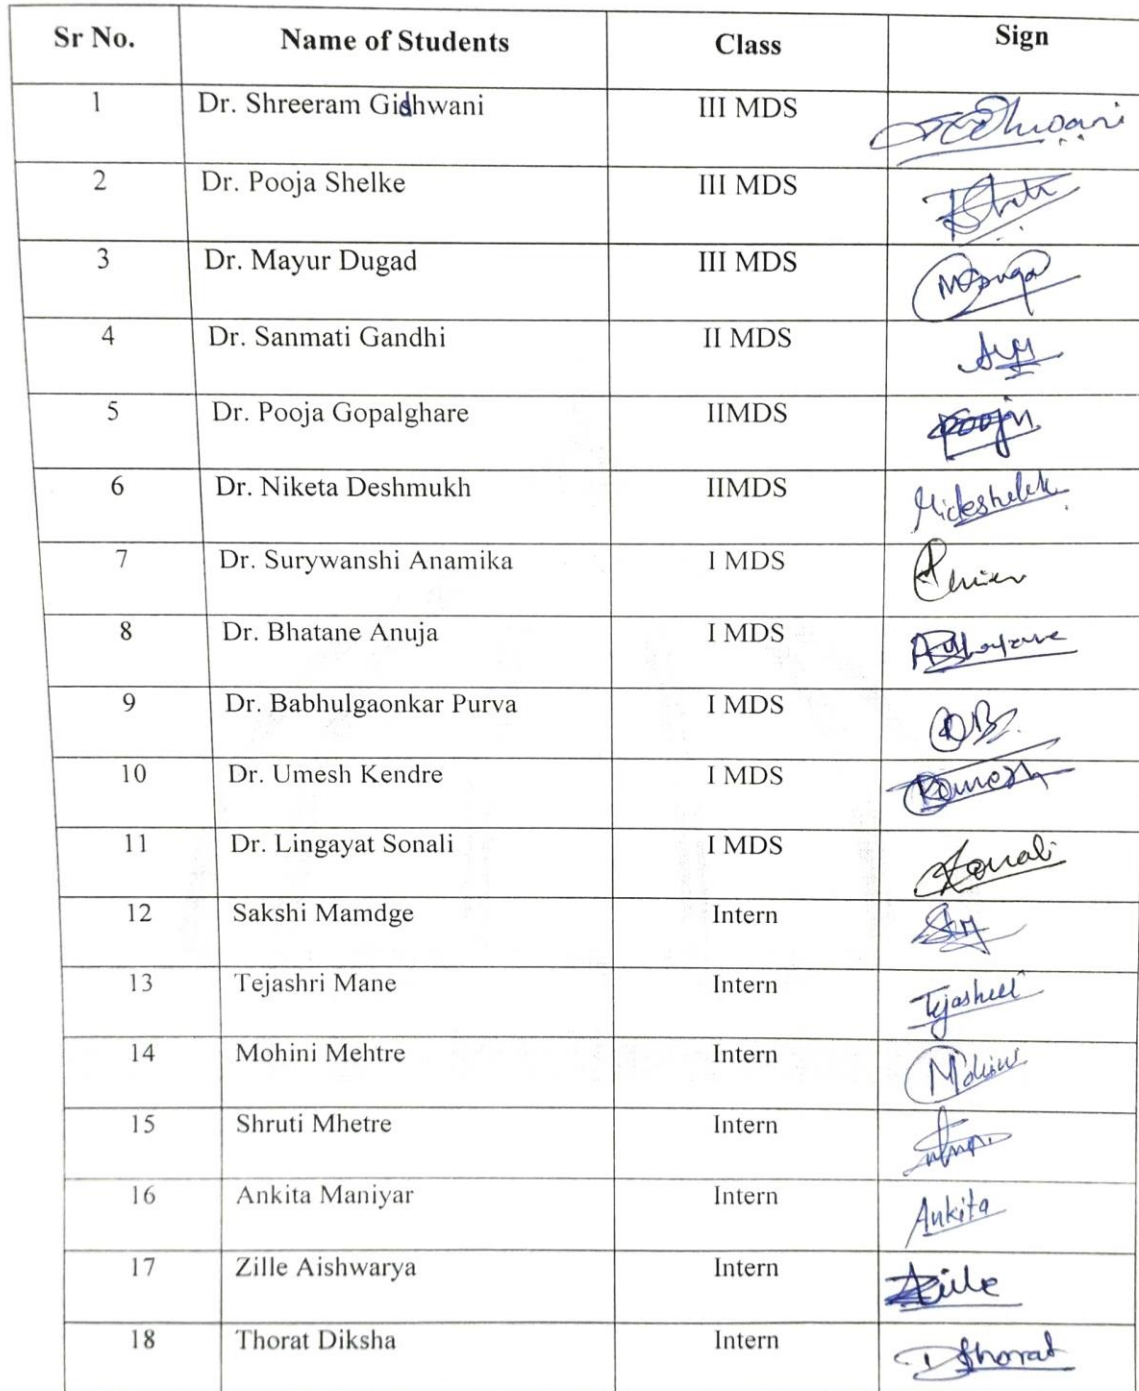 Sr No. Name of Students Class Sign
1 Dr. Shreeram Gidhwani III MDS
2 Dr. Pooja Shelke III MDS
3 Dr. Mayur Dugad III MDS
4 Dr. Sanmati Gandhi II MDS
5 Dr. Pooja Gopalghare IIMDS Pooja
6 Dr. Niketa Deshmukh IIMDS
7 Dr. Surywanshi Anamika I MDS
8 Dr. Bhatane Anuja I MDS
9 Dr. Babhulgaonkar Purva I MDS
10 Dr. Umesh Kendre I MDS
11 Dr. Lingayat Sonali I MDS Sonali
12 Sakshi Mamdge Intern
13 Tejashri Mane Intern
14 Mohini Mehtre Intern Mohini
15 Shruti Mhetre Intern
16 Ankita Maniyar Intern Ankita
17 Zille Aishwarya Intern Zille
18 Thorat Diksha Intern DThorat